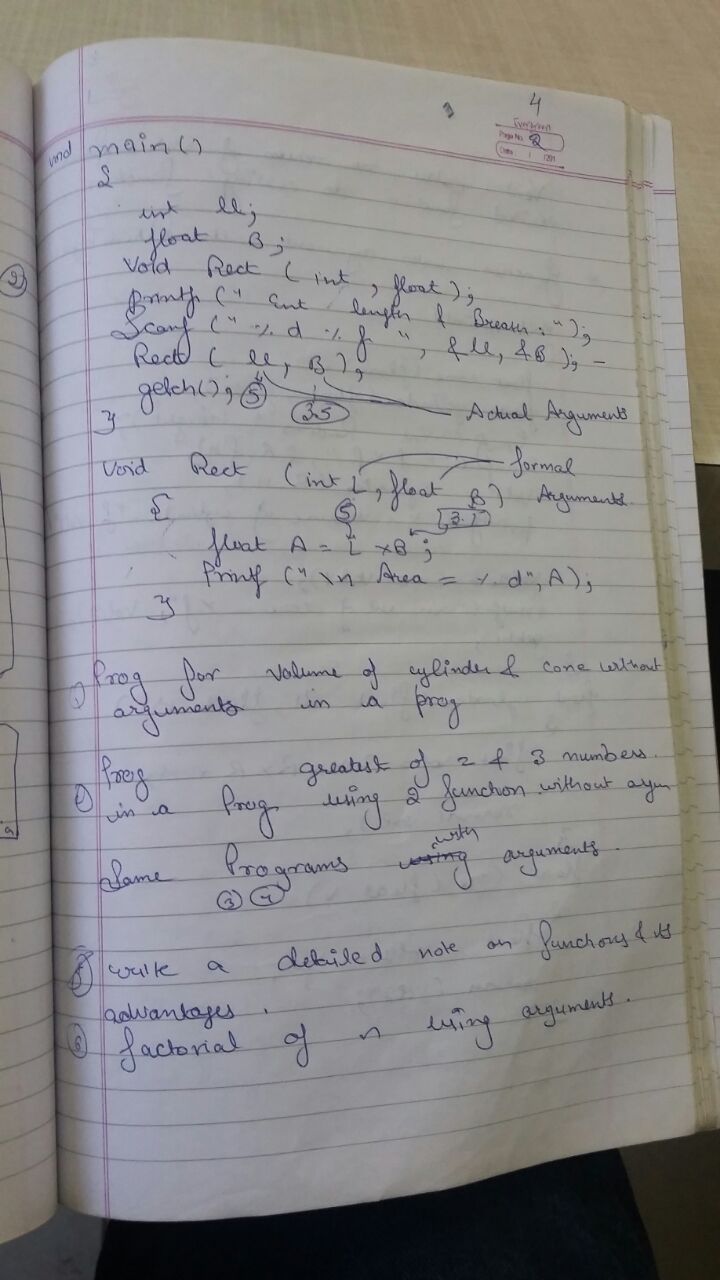 4
Evergreen
Page No. 2
Date: / /201
void main()
{
int ll;
float B;
Void Rect (int, float);
Printf (" Ent length & Breath: ");
Scanf (" %d %f ", &ll, &B);
Rect (ll, B);
getch();
5
3.5
Actual Arguments
}
2)
Void Rect (int L, float B)
formal
Arguments
{
5
float A = L × B;
Printf ("\n Area = %d", A);
}
1) Prog for volume of cylinder & cone without
arguments in a prog
2) Prog greatest of 2 & 3 numbers.
in a Prog using 2 function without argum
Same Programs with arguments.
3 4
5) write a detailed note on functions & its
advantages.
6) factorial of n using arguments.